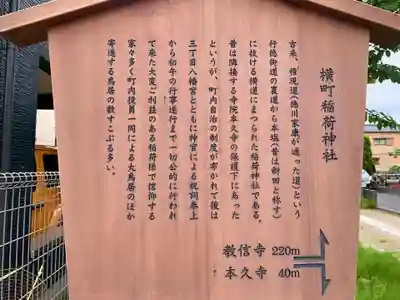 横町稲荷神社
古来、権現道(徳川家康が通った道)という
行徳街道の裏道から本塩(昔は新田と称す)
に抜ける横道にまつられた稲荷神社である。
昔は隣接する寺院本久寺の保護下にあった
というが、町内自治の制度が布かれて後は
三丁目八幡宮とともに神官による祝詞奏上
から初午の行事遂行まで一切公的に行われ
て来た大変ご利益のある稲荷様で信仰する
家々多く町内役員一同による大鳥居のほか
寄進する鳥居の数すこぶる多い。
教信寺 220m
本久寺 40m